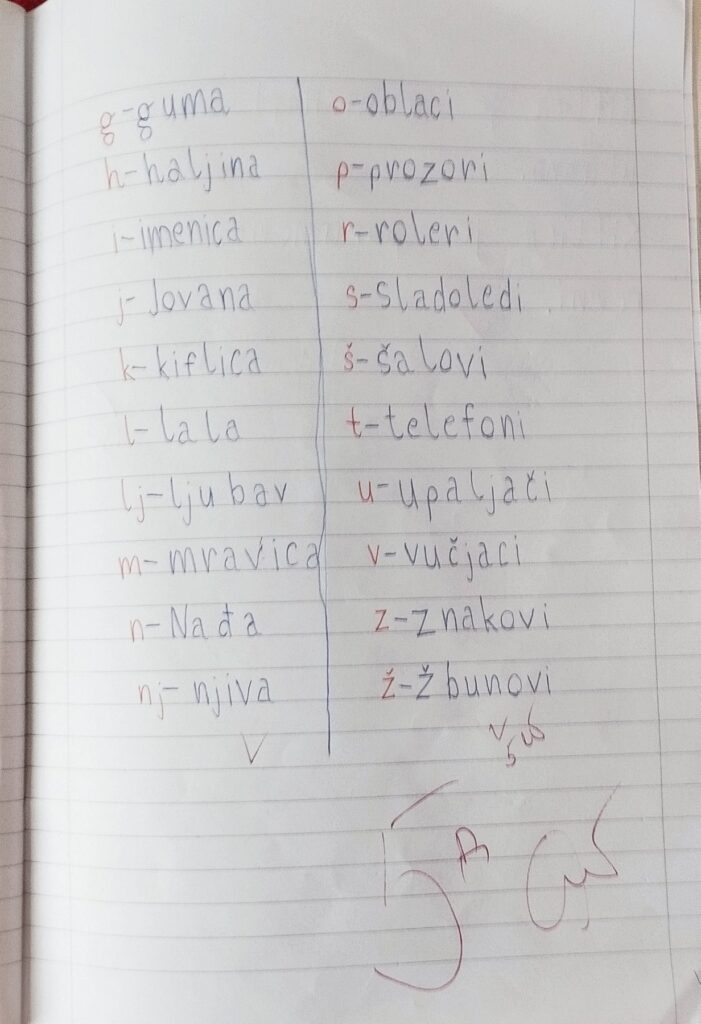 g-guma
h-haljina
i-imenica
j-Jovana
k-kiflica
l-lala
lj-ljubav
m-mravica
n-Nađa
nj-njiva
o-oblaci
p-prozori
r-roleri
s-sladoledi
š-šalovi
t-telefoni
u-upaljači
v-vučjaci
z-znakovi
ž-žbunovi
5